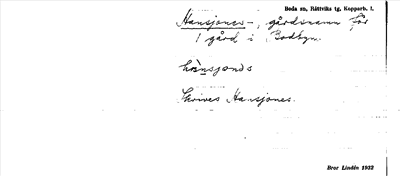 Boda sn, Rättviks tg. Kopparb. l.
Hansjones-, gårdsnamn för
1 gård i Bodbyn.
hànsjonɒs
Skrives Hansjones.
Bror Lindén 1932